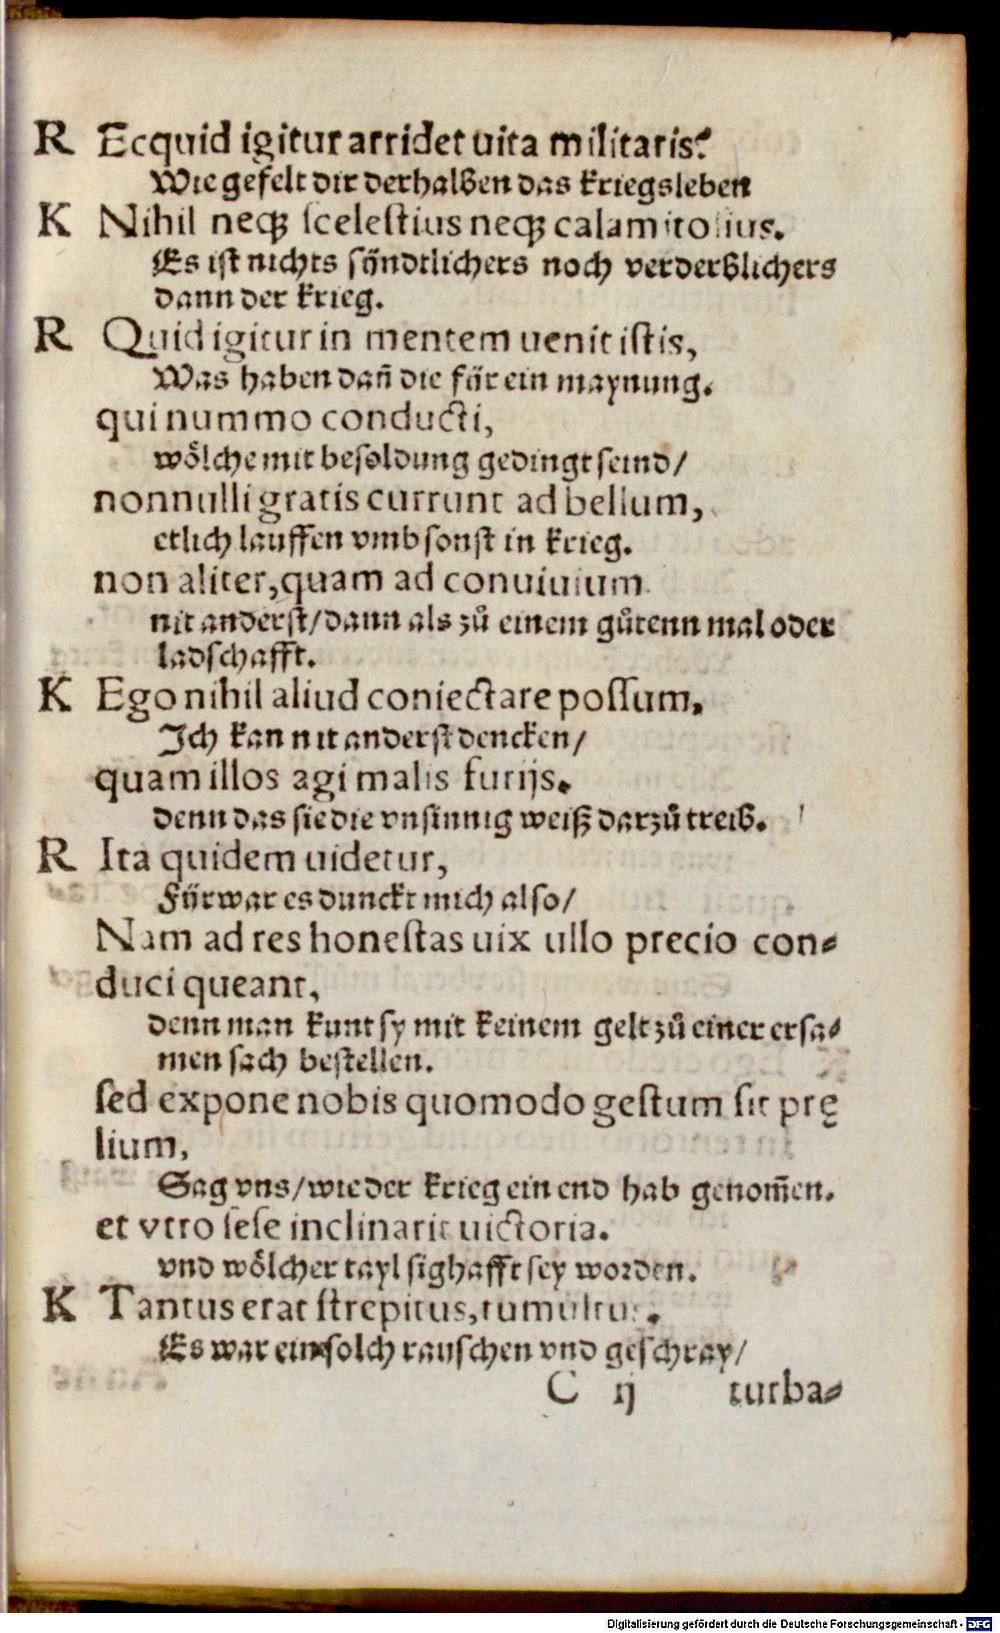 R Ecquid igitur arridet uita militaris?
Wie gefelt dir derhalben das kriegsleben
K Nihil neqꝫ scelestius neqꝫ calamitosius.
Es ist nichts sündtlichers noch verderblichers
dann der krieg.
R Quid igitur in mentem uenit istis,
Was haben dañ die für ein maynung.
qui nummo conducti,
wölche mit besoldung gedingt seind/
nonnulli gratis currunt ad bellum,
etlich lauffen vmb sonst in krieg.
non aliter, quam ad conuiuium.
nit anderst/dann als zů einem gůtenn mal oder
ladschafft.
K Ego nihil aliud coniectare possum.
Ich kan nit anderst dencken/
quam illos agi malis furijs.
denn das sie die vnsinnig weiß darzů treib.
R Ita quidem uidetur,
Fürwar es dunckt mich also/
Nam ad res honestas uix ullo precio con-
duci queant,
denn man kunt sy mit keinem gelt zů einer ersa-
men sach bestellen.
sed expone nobis quomodo gestum sit prę
lium,
Sag vns/wie der krieg ein end hab genom̃en.
et vtro sese inclinarit uictoria.
vnd wölcher tayl sighafft sey worden.
K Tantus erat strepitus, tumultus.
Es war ein solch rauschen vnd geschray/
C ij turba-
Digitalisierung gefördert durch die Deutsche Forschungsgemeinschaft - DFG